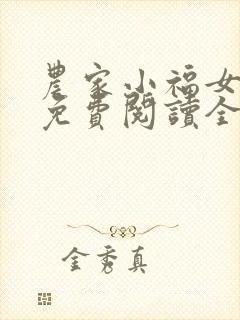 農家小福女
免費閱讀全
金秀真